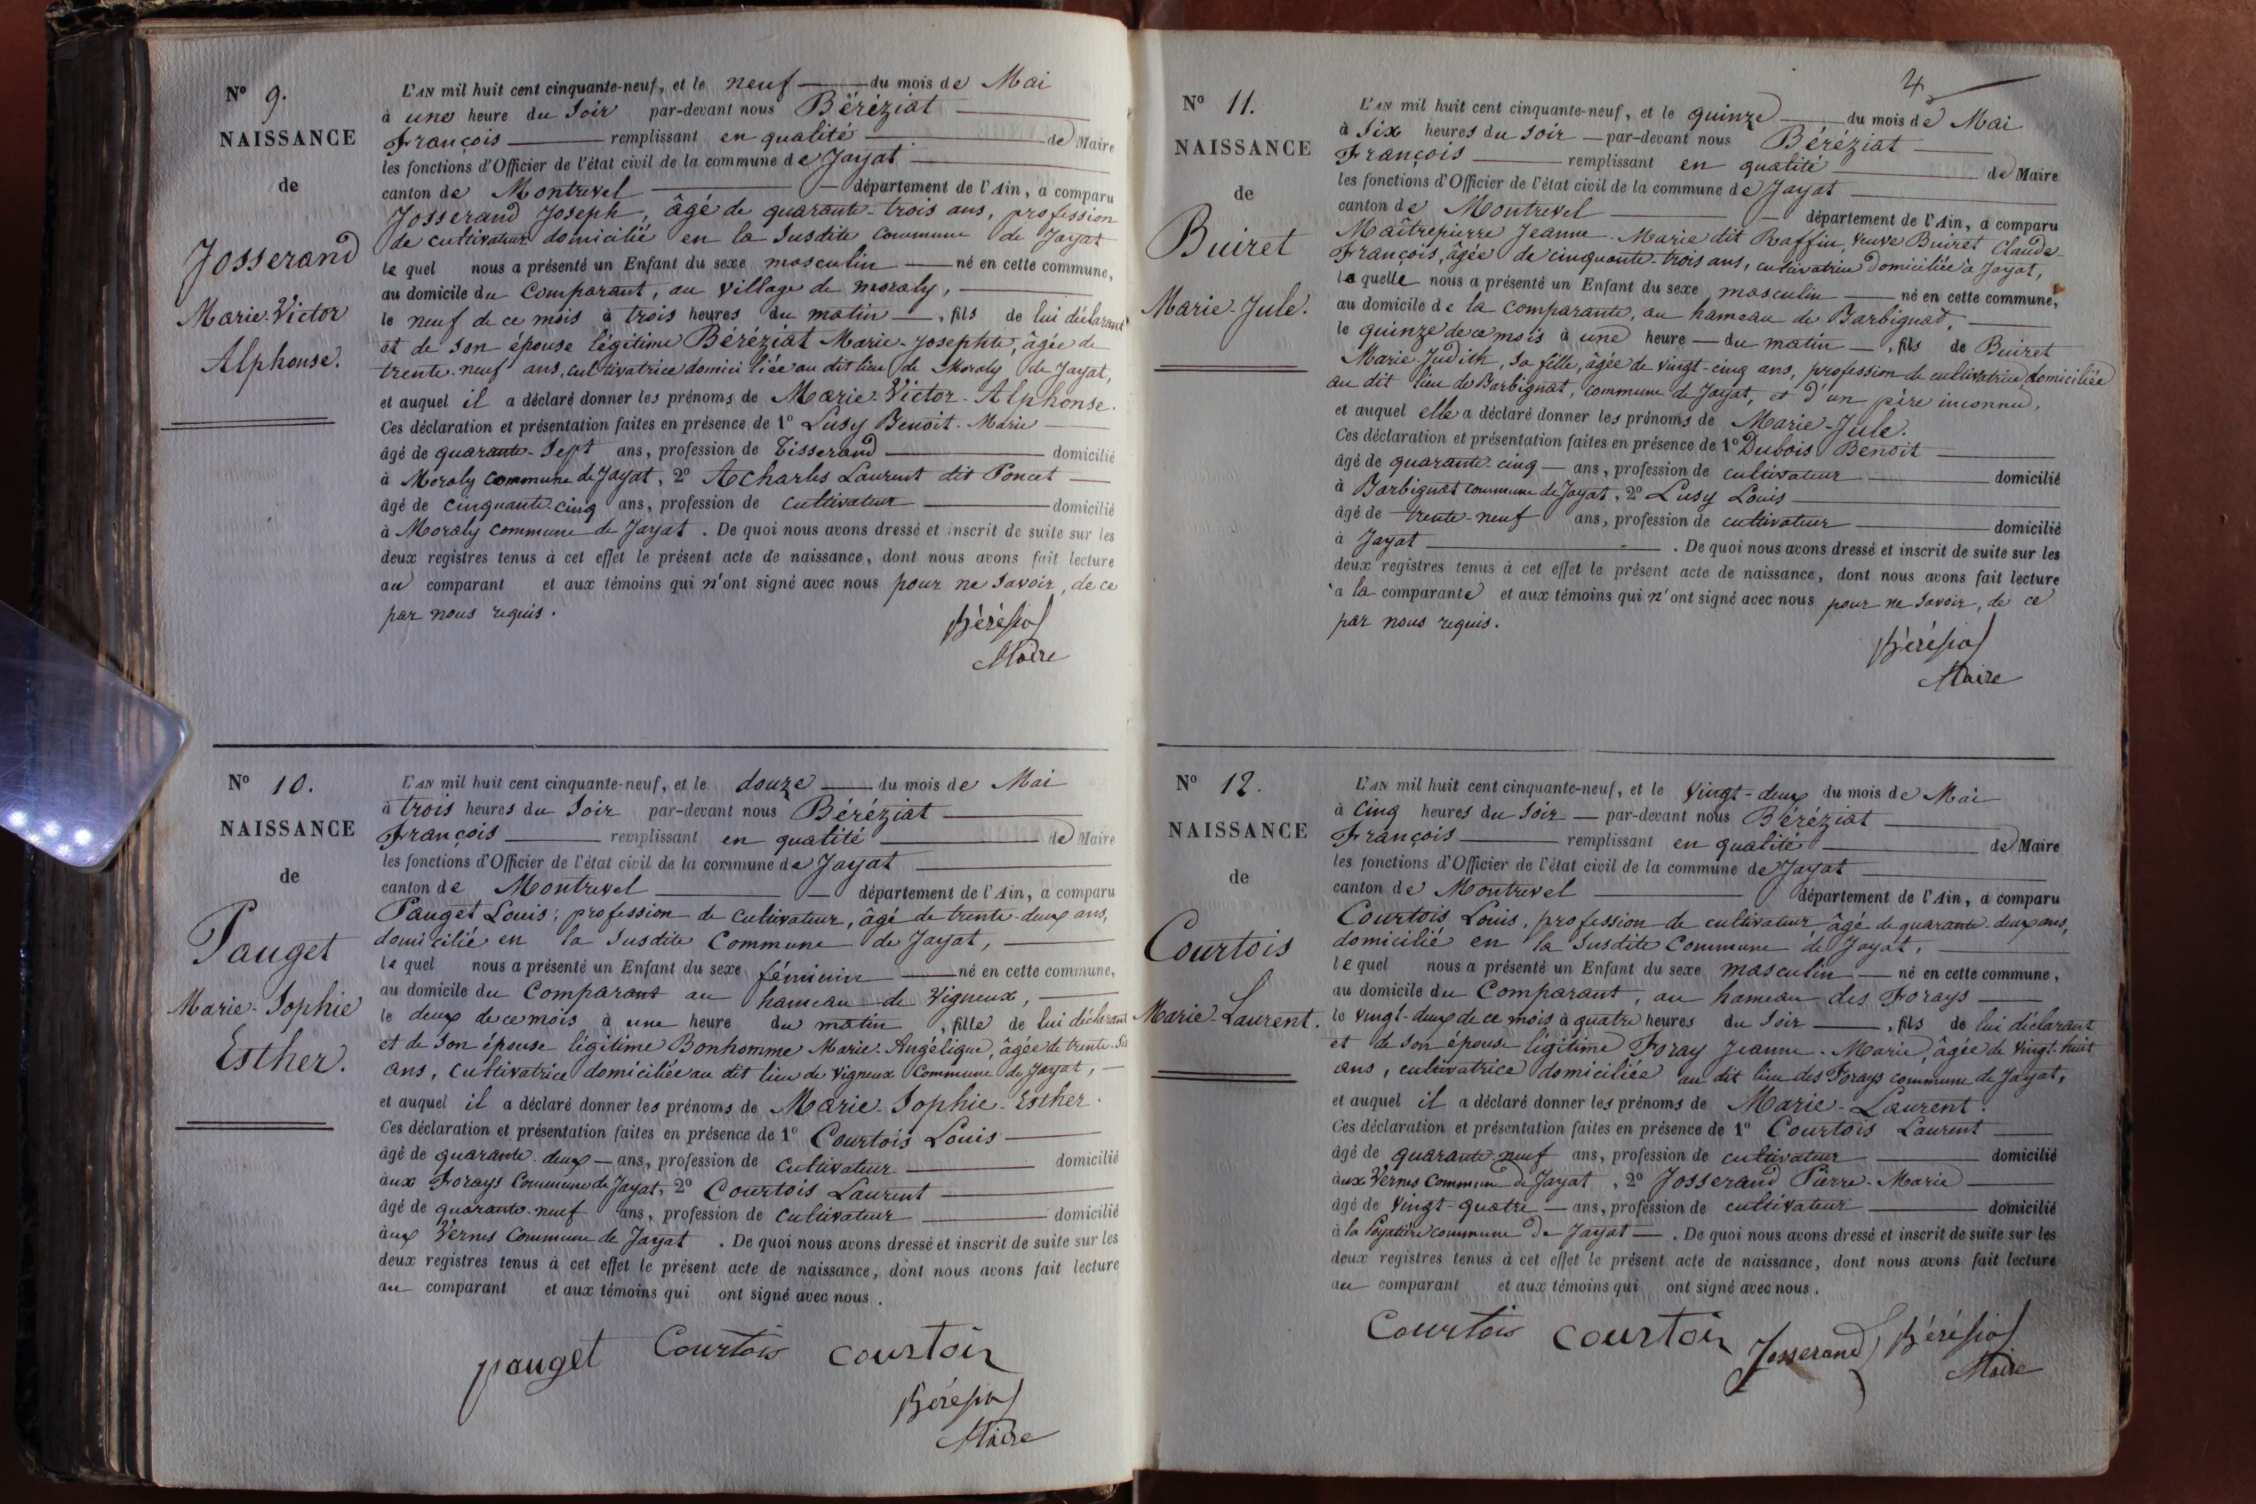 N° 9.
NAISSANCE
de
Josserand
Marie-Victor
Alphonse.
L'AN mil huit cent cinquante-neuf, et le neuf du mois de Mai
à une heure du soir par-devant nous Béréziat
François remplissant en qualité de Maire
les fonctions d'Officier de l'état civil de la commune de Jayat
canton de Montrevel département de l'Ain, a comparu
Josserand Joseph, âgé de quarante-trois ans, profession
de cultivateur domicilié en la susdite commune de Jayat
le quel nous a présenté un Enfant du sexe masculin né en cette commune,
au domicile du Comparant, au village de moraly,
le neuf de ce mois à trois heures du matin, fils de lui déclarant
et de son épouse légitime Béréziat Marie-Josephte, âgée de
trente-neuf ans, cultivatrice domiciliée au dit lieu de Moraly de Jayat,
et auquel il a déclaré donner les prénoms de Marie-Victor-Alphonse.
Ces déclaration et présentation faites en présence de 1° Lusy Benoit-Marie
âgé de quarante-sept ans, profession de Tisserand domicilié
à Moraly commune de Jayat, 2° Acharles Laurent dit Poncet
âgé de cinquante-cinq ans, profession de cultivateur domicilié
à Moraly commune de Jayat. De quoi nous avons dressé et inscrit de suite sur les
deux registres tenus à cet effet le présent acte de naissance, dont nous avons fait lecture
au comparant et aux témoins qui n'ont signé avec nous pour ne savoir, de ce
par nous requis.
Béréziat
Maire
N° 10.
NAISSANCE
de
Pauget
Marie-Sophie
Esther.
L'AN mil huit cent cinquante-neuf, et le douze du mois de Mai
à trois heures du soir par-devant nous Béréziat
François remplissant en qualité de Maire
les fonctions d'Officier de l'état civil de la commune de Jayat
canton de Montrevel département de l'Ain, a comparu
Pauget Louis, profession de cultivateur, âgé de trente-deux ans,
domicilié en la susdite Commune de Jayat,
le quel nous a présenté un Enfant du sexe féminin né en cette commune,
au domicile du Comparant au hameau de Vigneux,
le deux de ce mois à une heure du matin, fille de lui déclarant
et de son épouse légitime Bonhomme Marie-Angélique, âgée de trente-six
ans, cultivatrice domiciliée au dit lieu de Vigneux Commune de Jayat,
et auquel il a déclaré donner les prénoms de Marie-Sophie-Esther.
Ces déclaration et présentation faites en présence de 1° Courtois Louis
âgé de quarante-deux ans, profession de cultivateur domicilié
aux Forays Commune de Jayat, 2° Courtois Laurent
âgé de quarante-neuf ans, profession de cultivateur domicilié
aux Vernes Commune de Jayat. De quoi nous avons dressé et inscrit de suite sur les
deux registres tenus à cet effet le présent acte de naissance, dont nous avons fait lecture
au comparant et aux témoins qui ont signé avec nous.
pauget Courtois courtois
Béréziat
Maire
4
N° 11.
NAISSANCE
de
Buiret
Marie-Jule.
L'AN mil huit cent cinquante-neuf, et le quinze du mois de Mai
à six heures du soir par-devant nous Béréziat
François remplissant en qualité de Maire
les fonctions d'Officier de l'état civil de la commune de Jayat
canton de Montrevel département de l'Ain, a comparu
Maîtrepierre Jeanne-Marie dit Raffin, veuve Buiret Claude-
François, âgée de cinquante-trois ans, cultivatrice domiciliée à Jayat,
la quelle nous a présenté un Enfant du sexe masculin né en cette commune,
au domicile de la comparante, au hameau de Barbignat,
le quinze de ce mois à une heure du matin, fils de Buiret
Marie-Judith, sa fille, âgée de vingt-cinq ans, profession de cultivatrice, domiciliée
au dit lieu de Barbignat, commune de Jayat, et d'un père inconnu,
et auquel elle a déclaré donner les prénoms de Marie-Jule.
Ces déclaration et présentation faites en présence de 1° Dubois Benoit
âgé de quarante-cinq ans, profession de cultivateur domicilié
à Barbignat commune de Jayat, 2° Lusy Louis
âgé de trente-neuf ans, profession de cultivateur domicilié
à Jayat. De quoi nous avons dressé et inscrit de suite sur les
deux registres tenus à cet effet le présent acte de naissance, dont nous avons fait lecture
à la comparante et aux témoins qui n'ont signé avec nous pour ne savoir, de ce
par nous requis.
Béréziat
Maire
N° 12.
NAISSANCE
de
Courtois
Marie-Laurent.
L'AN mil huit cent cinquante-neuf, et le vingt-deux du mois de Mai
à cinq heures du soir par-devant nous Béréziat
François remplissant en qualité de Maire
les fonctions d'Officier de l'état civil de la commune de Jayat
canton de Montrevel département de l'Ain, a comparu
Courtois Louis, profession de cultivateur âgé de quarante-deux ans,
domicilié en la susdite commune de Jayat,
le quel nous a présenté un Enfant du sexe masculin né en cette commune,
au domicile du Comparant, au hameau des Forays
le vingt-deux de ce mois à quatre heures du soir, fils de lui déclarant
et de son épouse légitime Foray Jeanne-Marie, âgée de vingt-huit
ans, cultivatrice domiciliée au dit lieu des Forays commune de Jayat,
et auquel il a déclaré donner les prénoms de Marie-Laurent.
Ces déclaration et présentation faites en présence de 1° Courtois Laurent
âgé de quarante-neuf ans, profession de cultivateur domicilié
aux Vernes commune de Jayat, 2° Josserand Pierre-Marie
âgé de vingt-quatre ans, profession de cultivateur domicilié
à la commune de Jayat. De quoi nous avons dressé et inscrit de suite sur les
deux registres tenus à cet effet le présent acte de naissance, dont nous avons fait lecture
au comparant et aux témoins qui ont signé avec nous.
Courtois courtois Josserand Béréziat
Maire